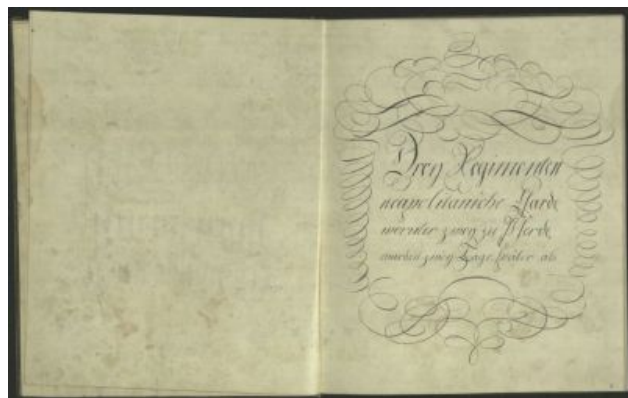 Drey Regimenter
neapolitanische Garde
worunter zwey zu Pferde
wurden zwey Tage später als